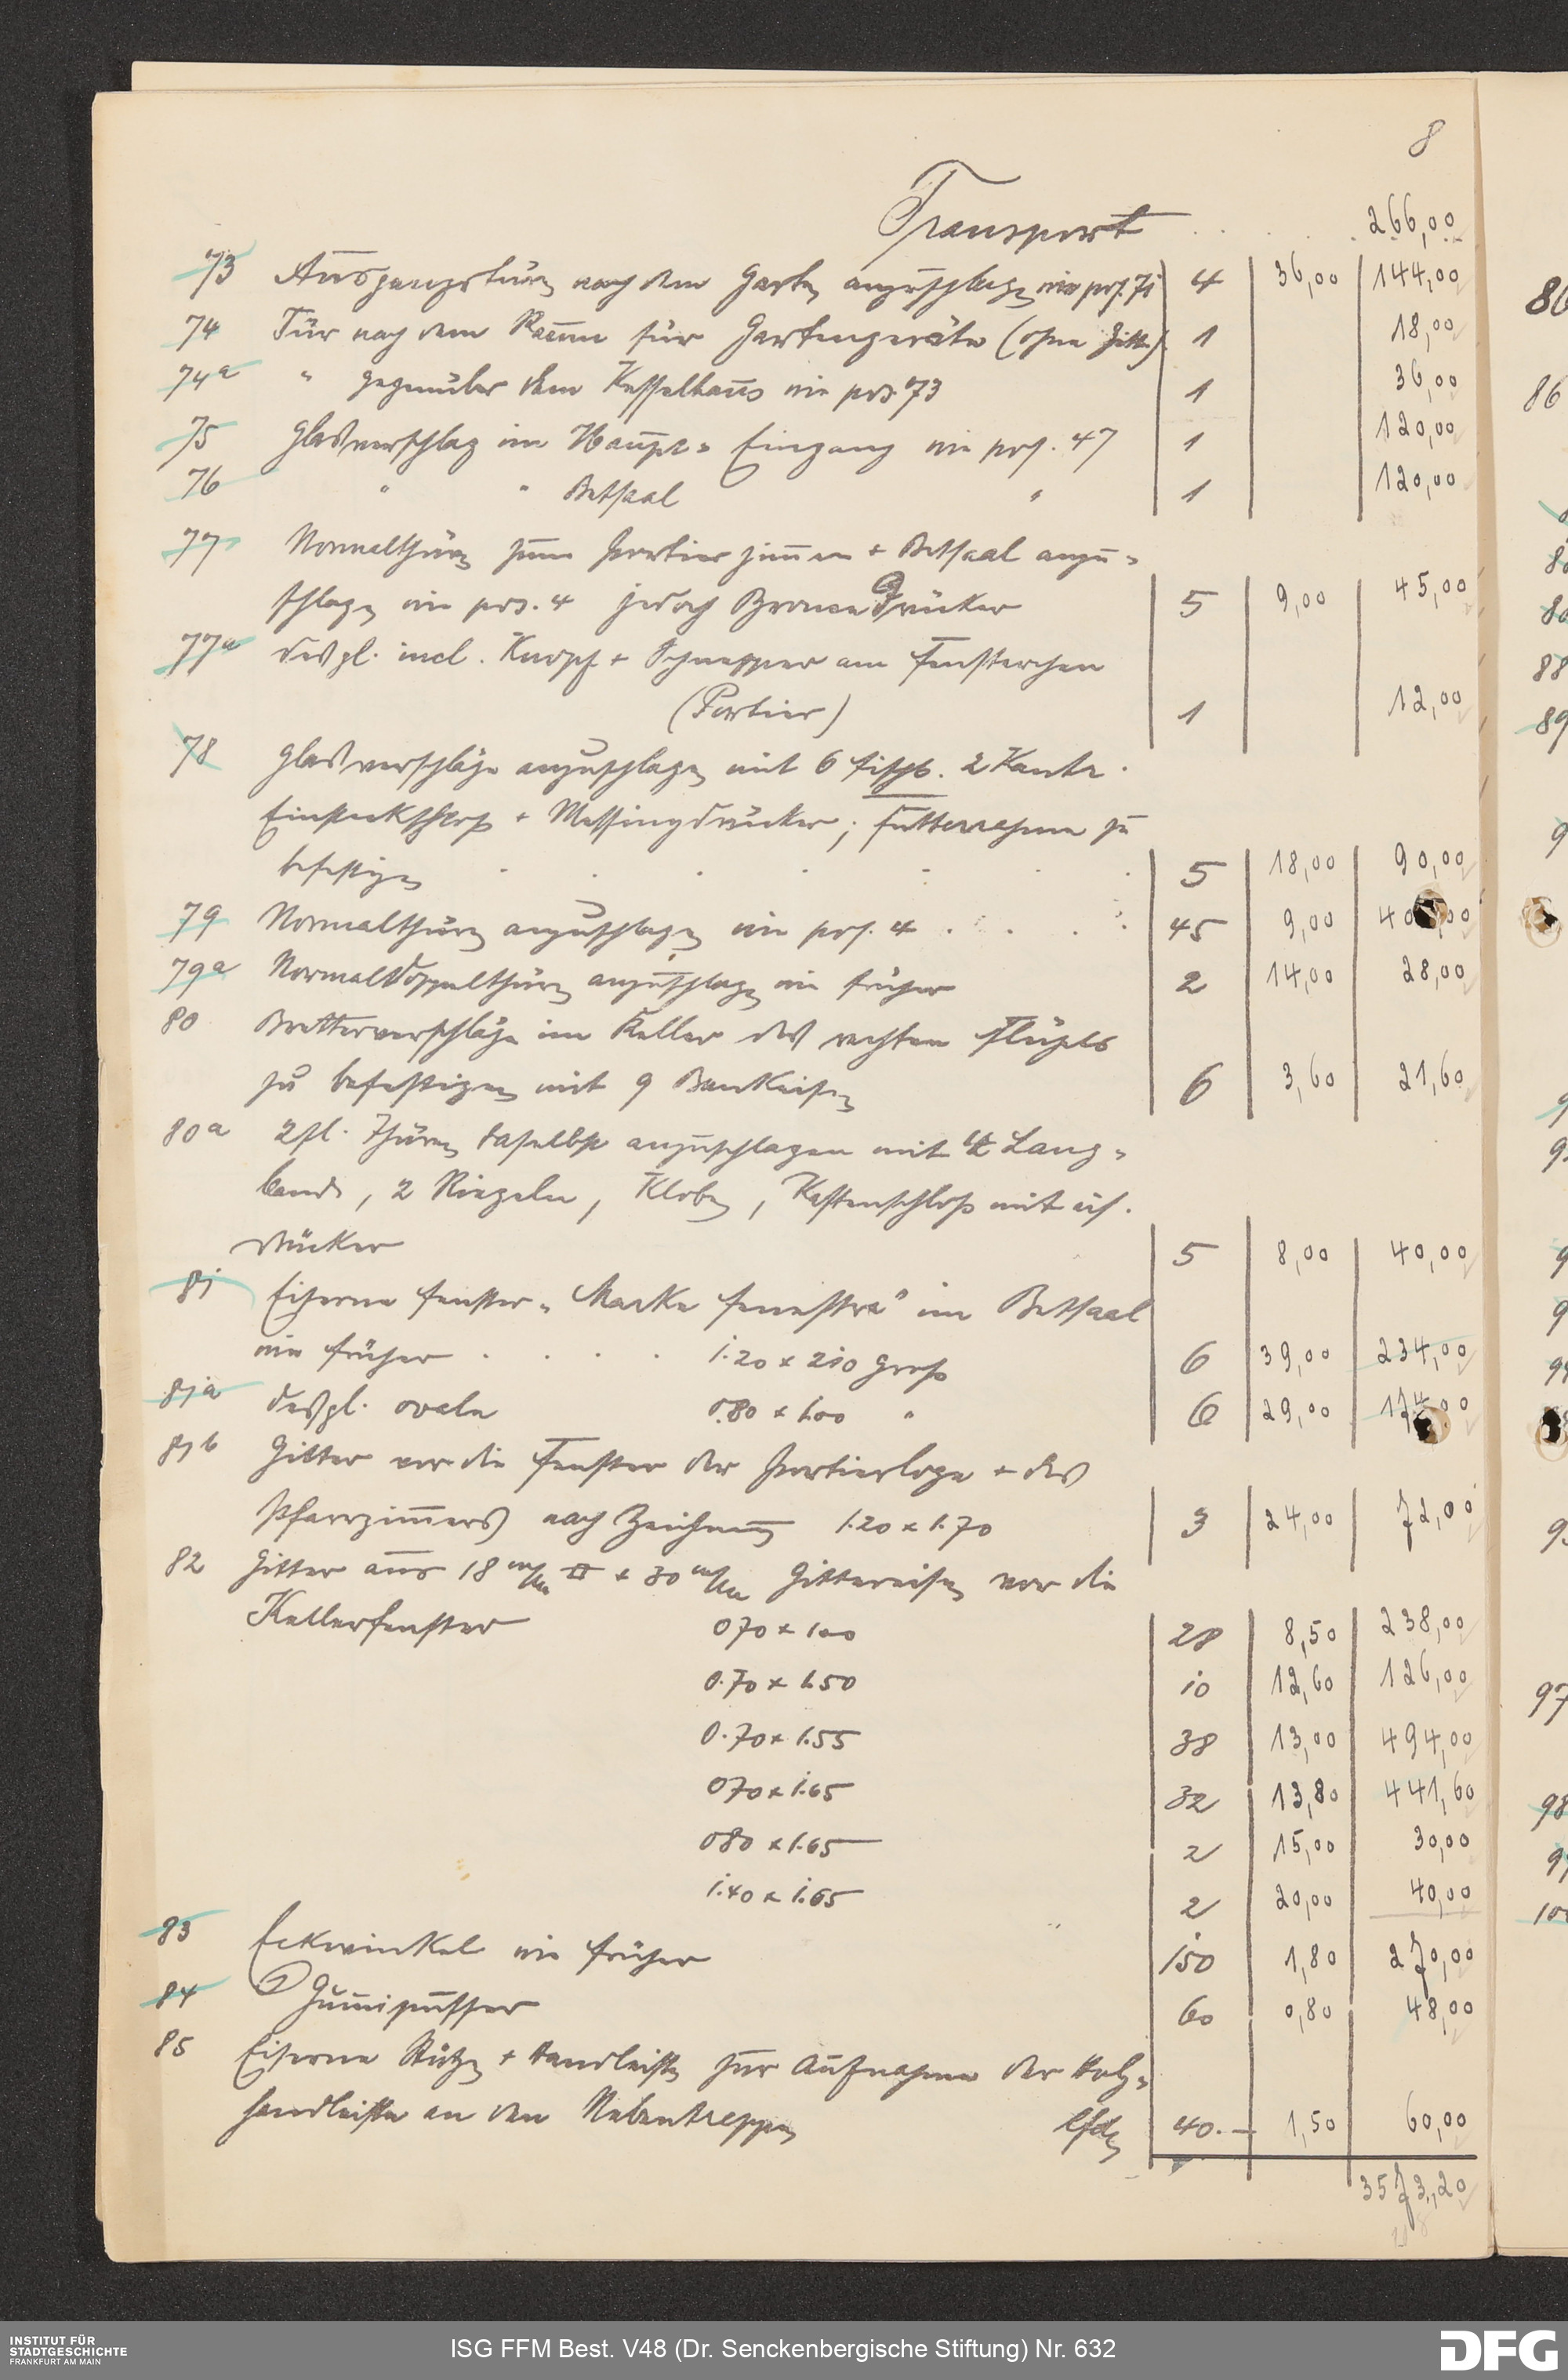 8
Transport . . . . 266,00
73 Ausgangsthüren nach dem Garten anzuschlagen wie pos. 71 4 36,00 144,00
74 Tür nach dem Raum für Gartengeräte (ohne Gitter) 1 18,00
74a " gegenüber dem Kesselhaus wie pos. 73 1 36,00
75 Glasverschlag im Haupt= Eingang wie pos. 47 1 120,00
76 " " Betsaal " 1 120,00
77 Normalthüren zum Portierzimmer + Betsaal anzu=
schlagen wie pos. 4 jedoch Broncedrücker 5 9,00 45,00
77a desgl. incl. Knopf + Schnepper am Fensterchen
(Portier) 1 12,00
78 Glasverschläge anzuschlagen mit 6 Fischb. 2 Kantr.
Einsteckschloss + Messingdrücker; Futterrahmen zu
befestigen . . . . . . . 5 18,00 90,00
79 Normalthüren anzuschlagen wie pos. 4 . . . . 45 9,00 40 ,00
79a Normaldoppelthüren anzuschlagen wie früher 2 14,00 28,00
80 Bretterverschläge im Keller des rechten Flügels
zu befestigen mit 9 Bankeisen 6 3,60 21,60
80a 2fl. Thüren daselbst anzuschlagen mit 4 Lang=
band, 2 Riegeln, Kloben, Kastenschloss mit eis.
drücker 5 8,00 40,00
81 Eiserne Fenster „Marke Fenestra" im Betsaal
wie früher . . . . 1.20 x 210 gross 6 39,00 234,00
81a desgl. ovale 0.80 x 1.00 " 6 29,00 174,00
81b Gitter vor die Fenster der Portierloge + des
Pfarrzimmers nach Zeichnung 1.20 x 1.70 3 24,00 72,00
82 Gitter aus 18 m/m □ + 30 m/m Gittereisen vor die
Kellerfenster 070 x 100 28 8,50 238,00
0.70 x 1.50 10 12,60 126,00
0.70 x 1.55 38 13,00 494,00
070 x 1.65 32 13,80 441,60
080 x 1.65 2 15,00 30,00
1.40 x 1.65 2 20,00 40,00
83 Eckwinkel wie früher 150 1,80 270,00
84 Gumipuffer 60 0,80 48,00
85 Eiserne Stützen + Bandleisten zur Aufnahme der Holz=
handleiste an den Nebentreppen lfdm 40.— 1,50 60,00
3573,20
86
86
88
89
97
98
INSTITUT FÜR
STADTGESCHICHTE
FRANKFURT AM MAIN
ISG FFM Best. V48 (Dr. Senckenbergische Stiftung) Nr. 632
DFG